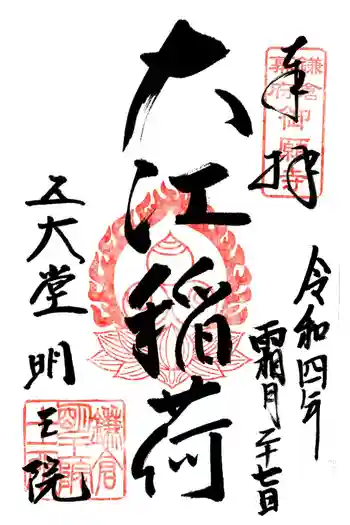 奉拝
鎌倉
幕府
御願寺
令和四年
霜月二十七日
大江稲荷
五大堂明王院
鎌倉
明王院